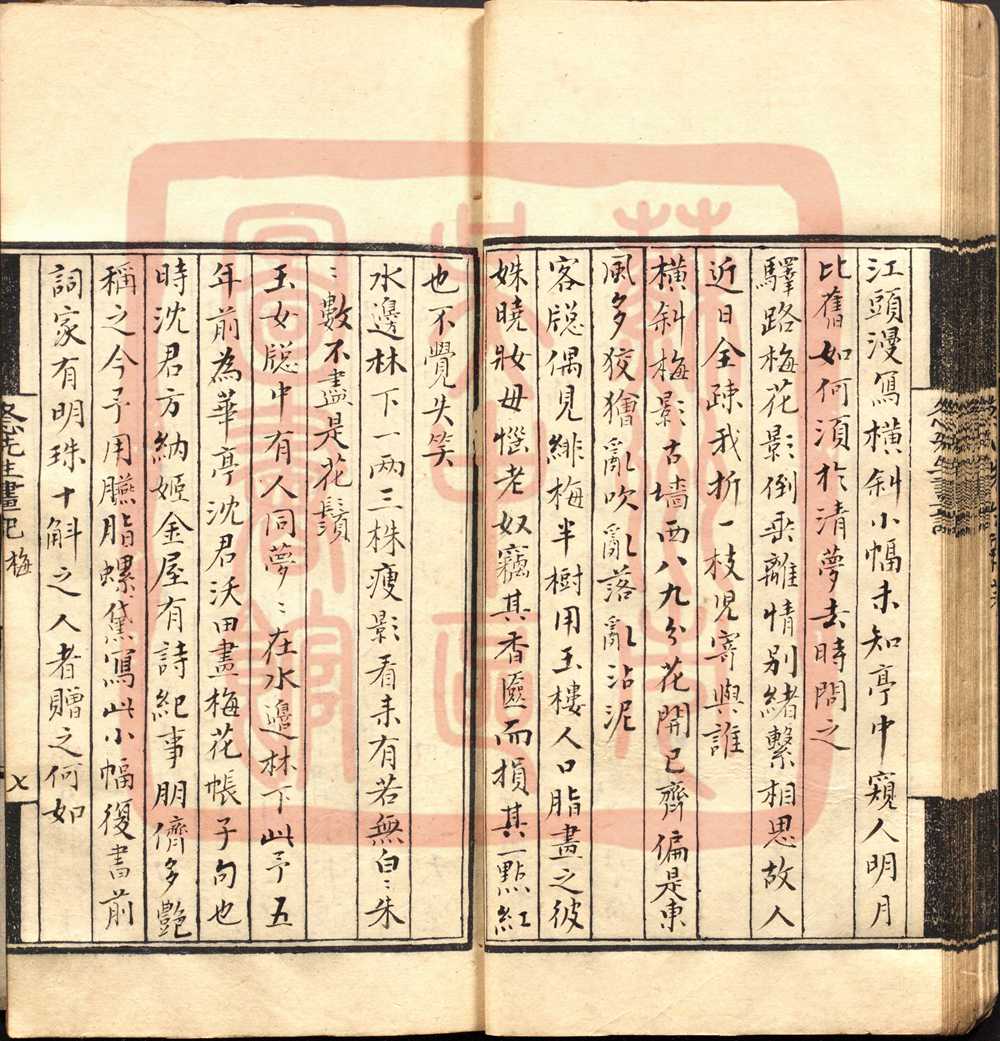 江頭漫寫橫斜小幅未知亭中窺人明月
比舊如何須於清夢去時問之
驛路梅花影倒垂離情別緒繫相思故人
近日全疎我折一枝児寄與誰
橫斜梅影古墻西八九分花開已齊偏是東
風多狡獪亂吹乱落乱沾泥
客牎偶見緋梅半樹用玉樓人口脂畫之彼
姝曉妝毋惱老奴竊其香奩而損其一點紅
也不覺失笑
水邊林下一兩三株瘦影看来有若無白〻朱
〻數不盡是花鬚
玉女牎中有人同夢〻在水邊林下此予五
年前為華亭沈君沃田畫梅花帳子句也
時沈君方納姬金屋有詩紀事朋儕多艷
稱之今予用臙脂螺黛寫此小幅復書前
詞家有明珠十斛之人者贈之何如
冬心先生畫記 梅
七
蘇州市
吳中區
圖書館